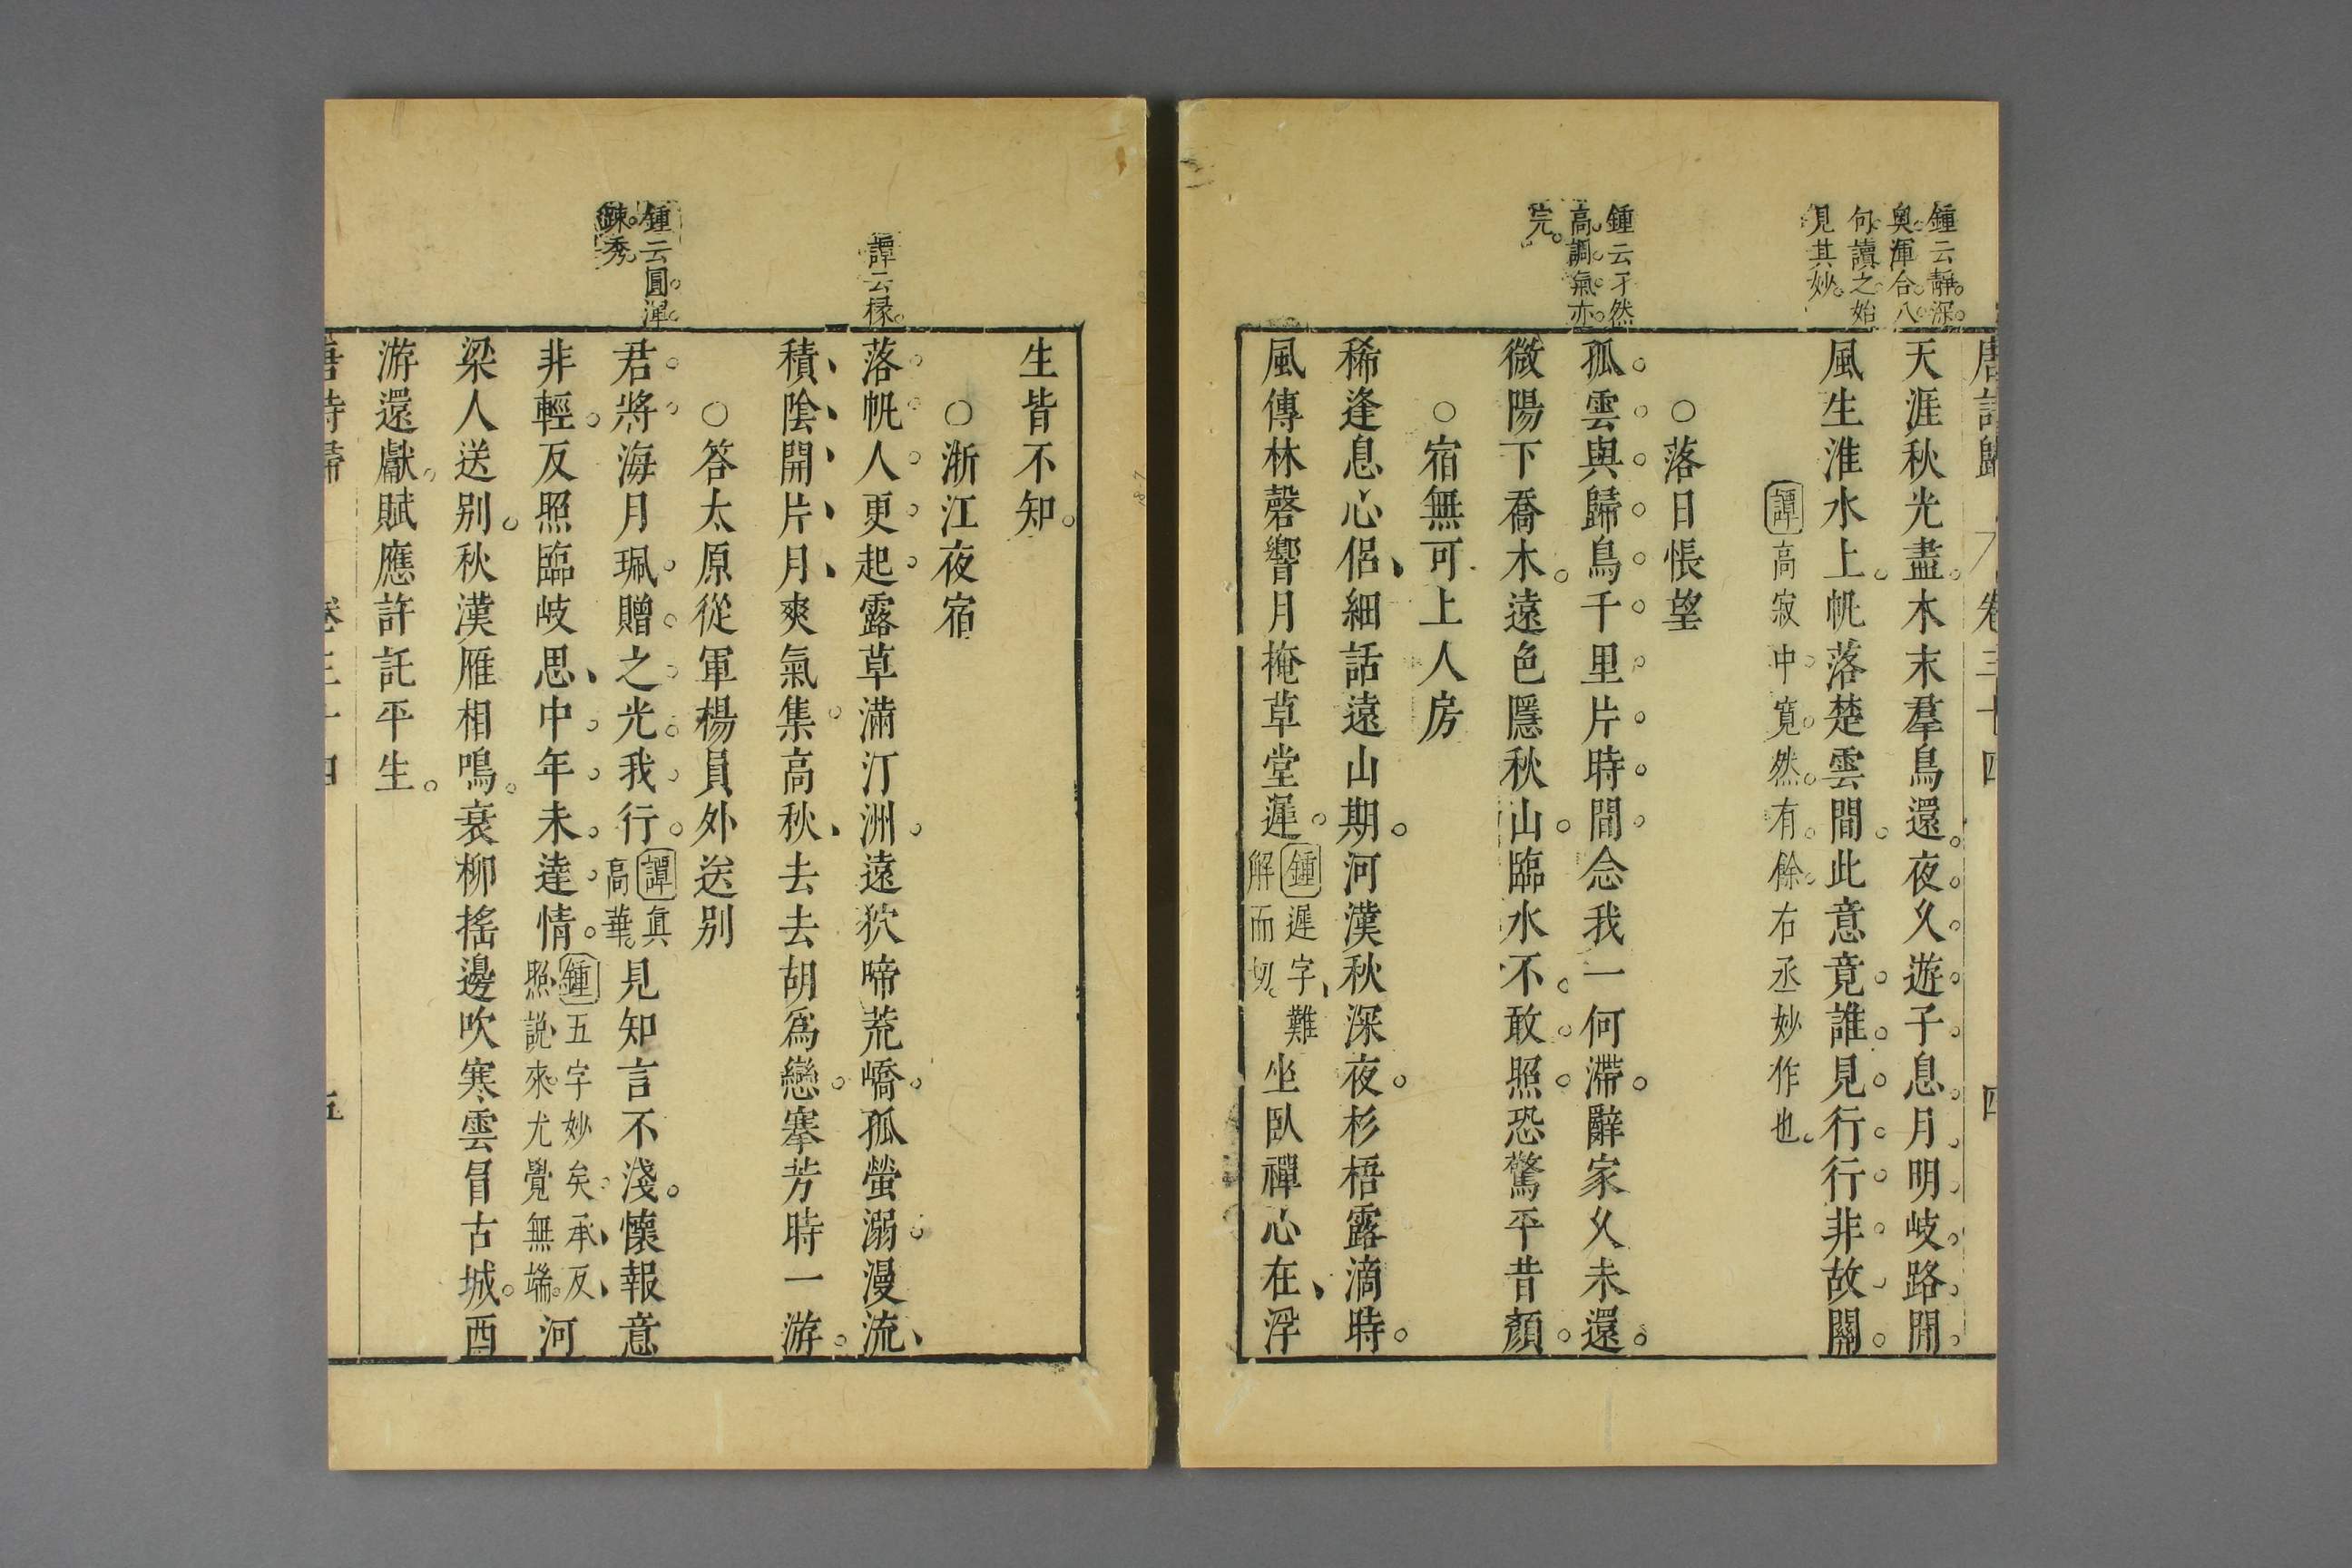 唐詩歸 卷三十四 四
鍾云靜深
奧渾合八
句讀之始
見其妙
天涯秋光盡木末羣鳥還夜久遊子息月明岐路閒
風生淮水上帆落楚雲間此意竟誰見行行非故關
譚高寂中寬然有餘右丞妙作也
○落日悵望
鍾云孑然
高調氣亦
完
孤雲與歸鳥千里片時間念我一何滯辭家久未還
微陽下喬木遠色隱秋山臨水不敢照恐驚平昔顏
○宿無可上人房
稀逢息心侶細話遠山期河漢秋深夜杉梧露滴時
風傳林磬響月掩草堂遲鍾遲字難解而切坐臥禪心在浮
生皆不知
○浙江夜宿
譚云椽
落帆人更起露草滿汀洲遠狖啼荒嶠孤螢溺漫流
積陰開片月爽氣集高秋去去胡爲戀搴芳時一游
○答太原從軍楊員外送别
鍾云圓渾
鍊秀
君將海月珮贈之光我行譚眞高華見知言不淺懷報意
非輕反照臨岐思中年未達情鍾五字妙矣承反照說來尤覺無端河
梁人送别秋漢雁相鳴衰柳搖邊吹寒雲冒古城酉
游還獻賦應許託平生
唐詩歸 卷三十四 五